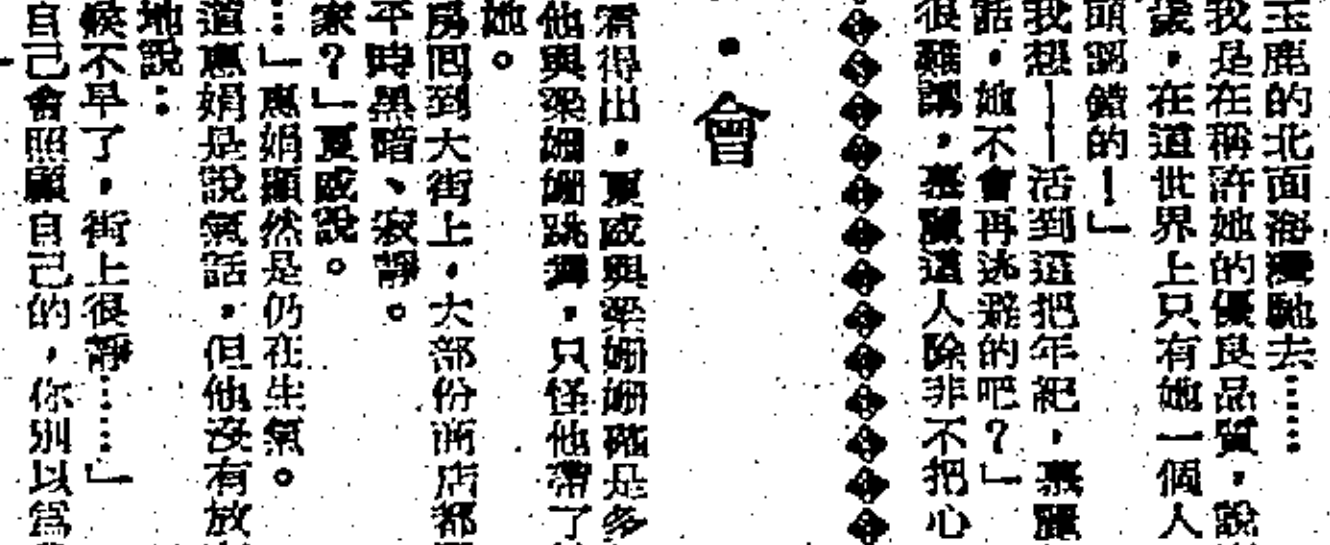 玉鹿的北面海灣馳去……
我是在稱許她的優良品質,說
歲,在這世界上只有她一個人
頭認錯的!」
我想——活到這把年紀,慕麗
話,她不會再逃避的吧?」
很難講,慕麗這人除非不把心
・會
看得出,夏威與梁姍姍確是多
他與梁姍姍跳舞,只怪他帶了
她。
房回到大街上,大部份商店都
平時黑暗、寂靜。
家?」夏威說。
…」惠娟顯然是仍在生氣。
道惠娟是說氣話,但他沒有放
地說:
候不早了,街上很靜……」
自己會照顧自己的,你別以為